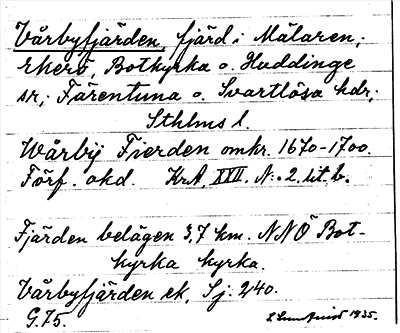 Vårbyfjärden, fjärd i Mälaren;
Ekerö, Botkyrka o. Huddinge
sr; Färentuna o. Svartlösa hdr;
Sthlms l.
Wårbÿ Fierden omkr. 1670-1700.
Förf. okd. KrA, XVII. N:o 2. lit. b.
Fjärden belägen 3,7 km. NNÖ Bot-
kyrka kyrka.
Vårbyfjärden ek, Sj: 240.
G.75. 1935.